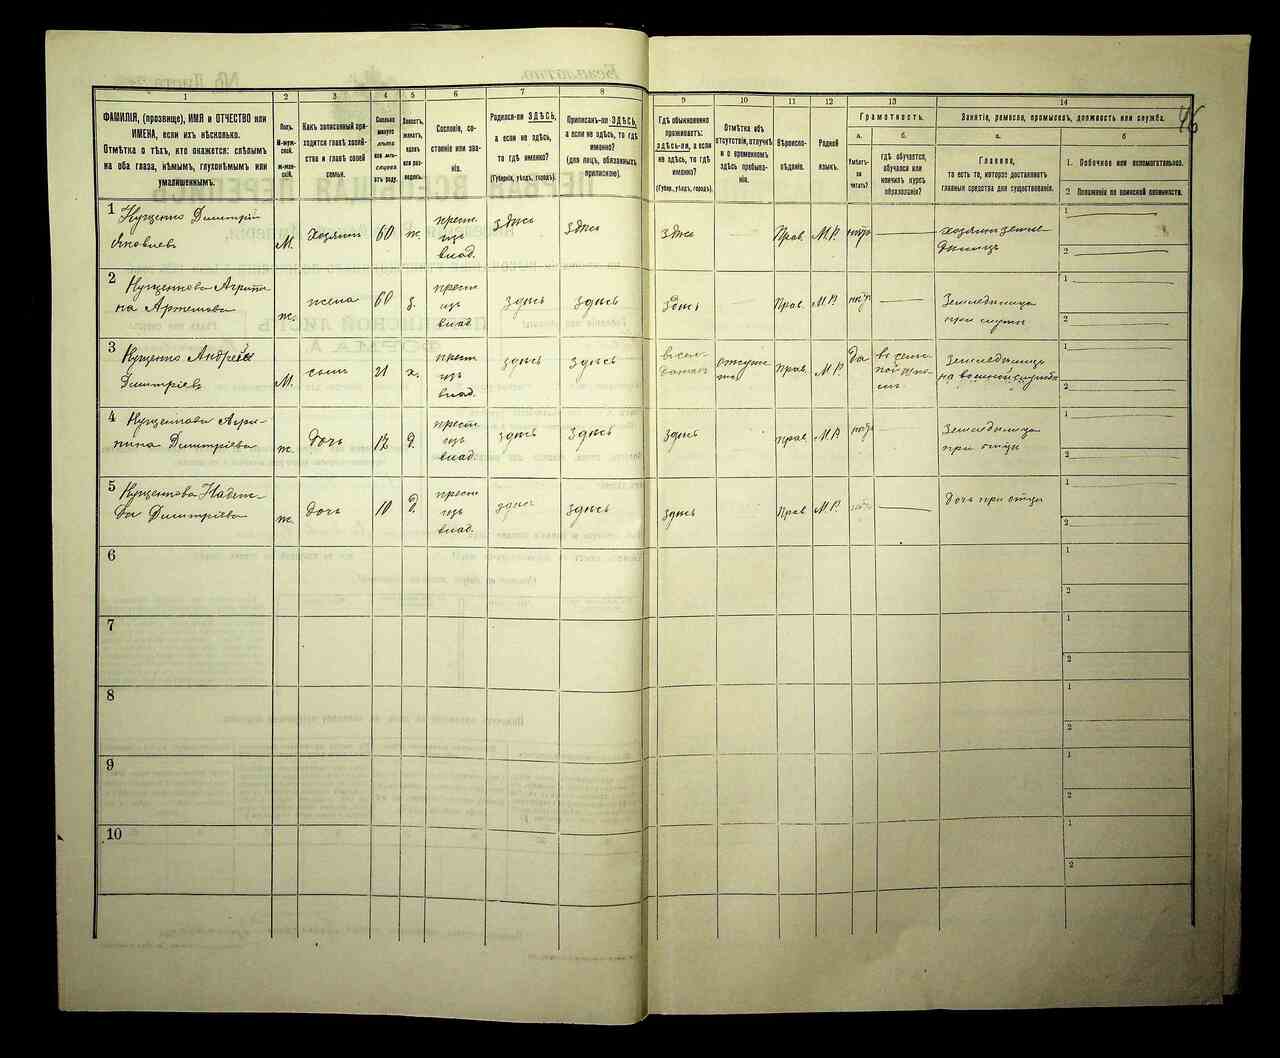 46
1 2 3 4 5 6 7 8 9 10 11 12 13 14
ФАМИЛІЯ, (прозвище), ИМЯ и ОТЧЕСТВО или
ИМЕНА, если ихъ нѣсколько.
Отмѣтка о тѣхъ, кто окажется: слѣпымъ
на оба глаза, нѣмымъ, глухонѣмымъ или
умалишеннымъ.
Полъ.
М-муж-
ской.
Ж-жен-
скій.
Какъ записанный при-
ходится главѣ хозяй-
ства и главѣ своей
семьи.
Сколько
минуло
лѣтъ
или мѣ-
сяцевъ
отъ роду.
Холостъ,
женатъ,
вдовъ
или раз-
веденъ.
Сословіе, со-
стояніе или зва-
ніе.
Родился-ли ЗДѢСЬ,
а если не здѣсь,
то гдѣ именно?
(Губернія, уѣздъ, городъ).
Приписанъ-ли ЗДѢСЬ,
а если не здѣсь, то гдѣ
именно?
(для лицъ, обязанныхъ
припискою).
Гдѣ обыкновенно
проживаетъ:
здѣсь-ли, а если
не здѣсь, то гдѣ
именно?
(Губер., уѣздъ, городъ).
Отмѣтка объ
отсутствіи, отлучкѣ
и о временномъ
здѣсь пребыва-
ніи.
Вѣроиспо-
вѣданіе.
Родной
языкъ.
Грамотность.
а.
Умѣетъ-
ли
читать?
б.
гдѣ обучается,
обучался или
кончилъ курсъ
образованія?
Занятіе, ремесло, промыселъ, должность или служба.
а.
Главное,
то есть то, которое доставляетъ
главныя средства для существованія.
б
1. Побочное или вспомогательное.
2 Положеніе по воинской повинности.
1 Кущенко Димитрій
Яковлевъ
М. хозяин 60 ж. крест.
изъ
влад. здѣсь здѣсь здѣсь Прав. М.Р. нѣтъ
хозяин земле-
дѣлецъ
1
2
2 Кущенкова Агрипи-
на Артемова
ж. жена 60 з. крест
изъ
влад. здѣсь здѣсь здѣсь Прав. М.Р. нѣтъ
Земледѣлица
при мужѣ
1
2
3 Кущенко Андрей
Димитріевъ
М. сынъ 21 х. крест
изъ
влад. здѣсь здѣсь
Прав. М.Р. да
Земледѣлецъ
на военной службѣ
1
2
4 Кущенкова Агри-
пина Димитріева
ж. дочь 17 д. крест
изъ
влад. здѣсь здѣсь здѣсь прав. М.Р. нѣтъ
Земледѣлица
при отцѣ
1
2
5 Кущенкова Надеж-
да Димитріева
ж. дочь 10 д. крест
изъ
влад. здѣсь здѣсь здѣсь Прав М.Р. нѣтъ
Дочь при отцѣ
1
2
6
1
2
7
1
2
8
1
2
9
1
2
10
1
2